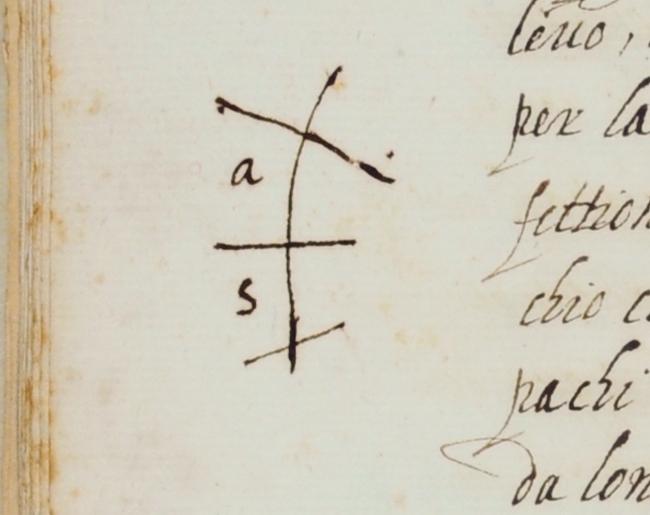 leuo,
per la
a
fettion
s
chio c
pachi
da lon